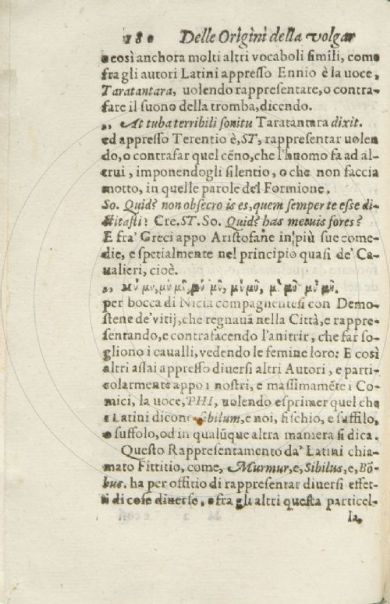 180 Delle Origini della volgar
e così anchora molti altri vocaboli simili, come
fra gli autori Latini appresso Ennio è la uoce,
Taratantara, uolendo rappresentate, o contra-
fare il suono della tromba, dicendo.
„ At tuba terribili sonitu Taratantara dixit.
ed appresso Terentio è, ST, rappresentar uolen
do, o contrafar quel cẽno, che l'huomo fa ad al-
trui, imponendogli silentio, o che non faccia
motto, in quelle parole del Formione.
So. Quid? non obsecro is es, quem semper te esse di-
ctitasti? Cre. ST. So. Quid? has metuis fores?
E fra' Greci appo Aristofane in più sue come-
die, e spetialmente nel principio quasi de' Ca-
ualieri, cioè.
„ μυ̃ μυ̃, μυ̃ μυ̃, μυ̃ μυ̃, μυ̃ μυ̃, μυ̃ μυ̃.
per bocca di Nicia compagnentesi con Demo-
stene de' vitij, che regnauã nella Città, e rappre-
sentando, e contrafacendo l'anitrir, che far so-
gliono i caualli, vedendo le femine loro: E così
altri assai appresso diversi altri Autori, e parti-
colarmente appo i nostri, e massimamẽte i Co-
mici, la uoce, PHI, uolendo esprimer quel che
i Latini dicono sibilum, e noi, fischio, e suffilo,
o suffolo, od in qualũque altra maniera si dica.
Questo Rappresentamento da' Latini chia-
mato Fittitio, come, Murmur, e, Sibilus, e, Bõ-
bus. ha per offitio di rappresentar diversi effet-
ti di cose diuerse, e fra gli altri questa particel-
la,